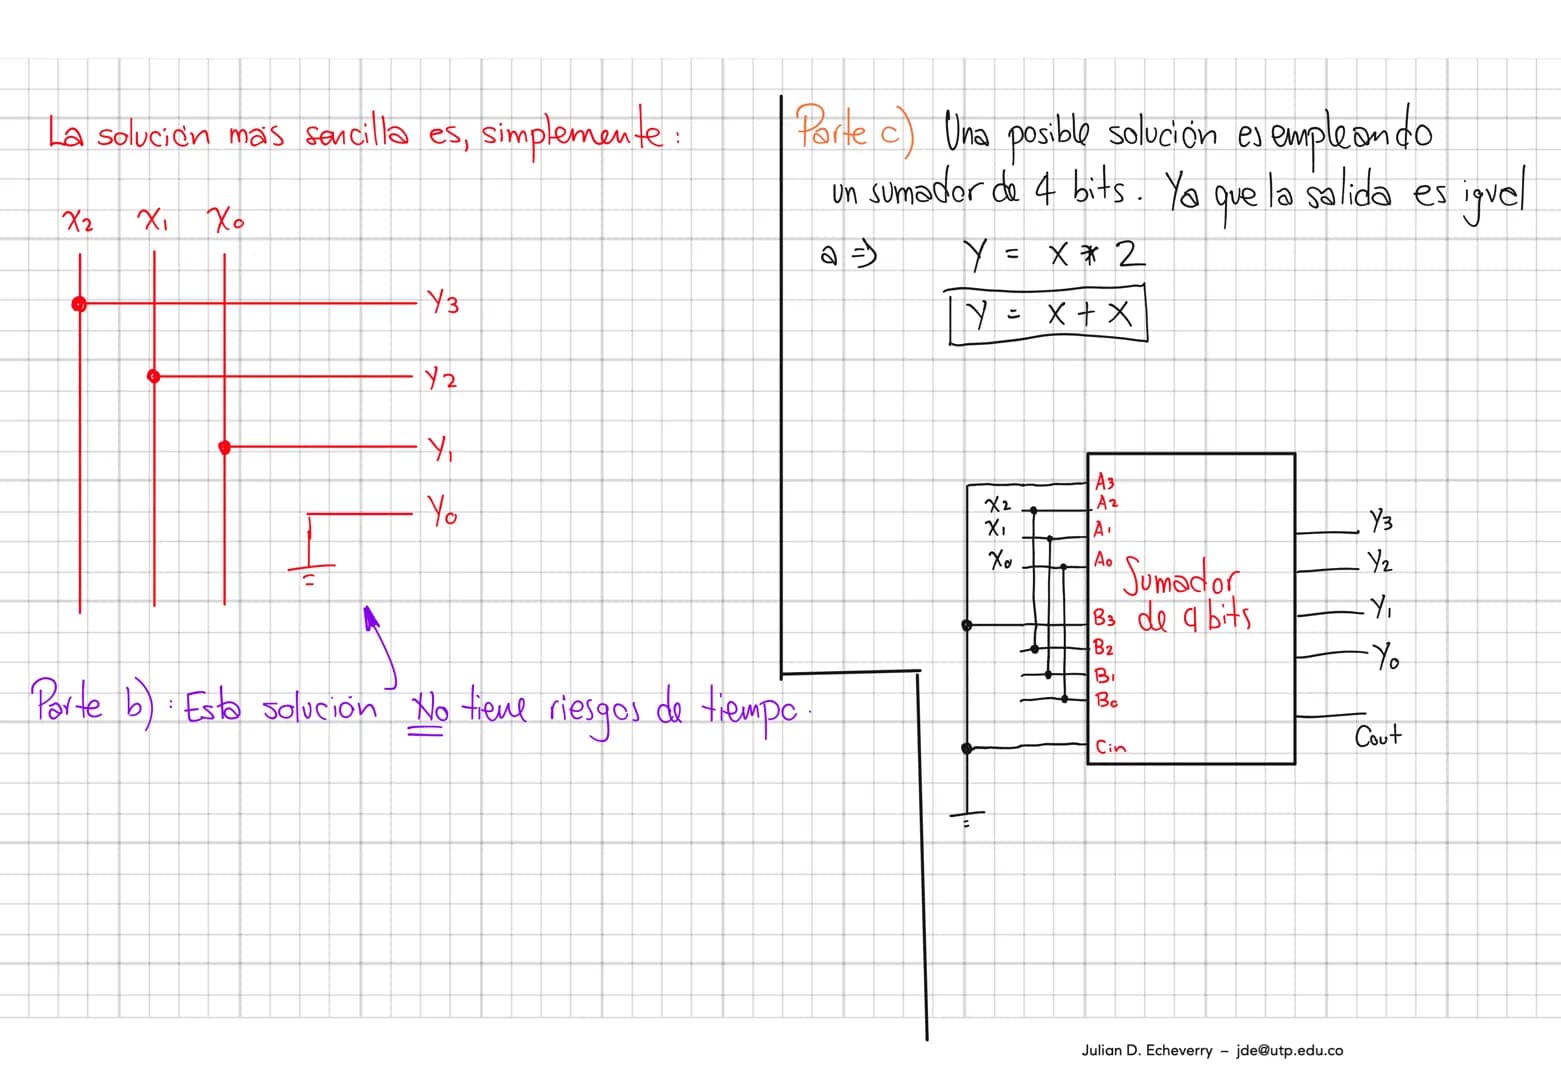 La solución más sencilla es, simplemente:
X2 X1 X0
Y3
Y2
Y1
Y0
Parte b): Esta solución No tiene riesgos de tiempo.
Parte c) Una posible solución es empleando
un sumador de 4 bits. Ya que la salida es igual
a ⇒ Y = X * 2
Y = X + X
X2
X1
X0
A3
A2
A1
A0
B3
B2
B1
B0
Cin
Sumador
de 4 bits
Y3
Y2
Y1
Y0
Cout
Julian D. Echeverry – jde@utp.edu.co